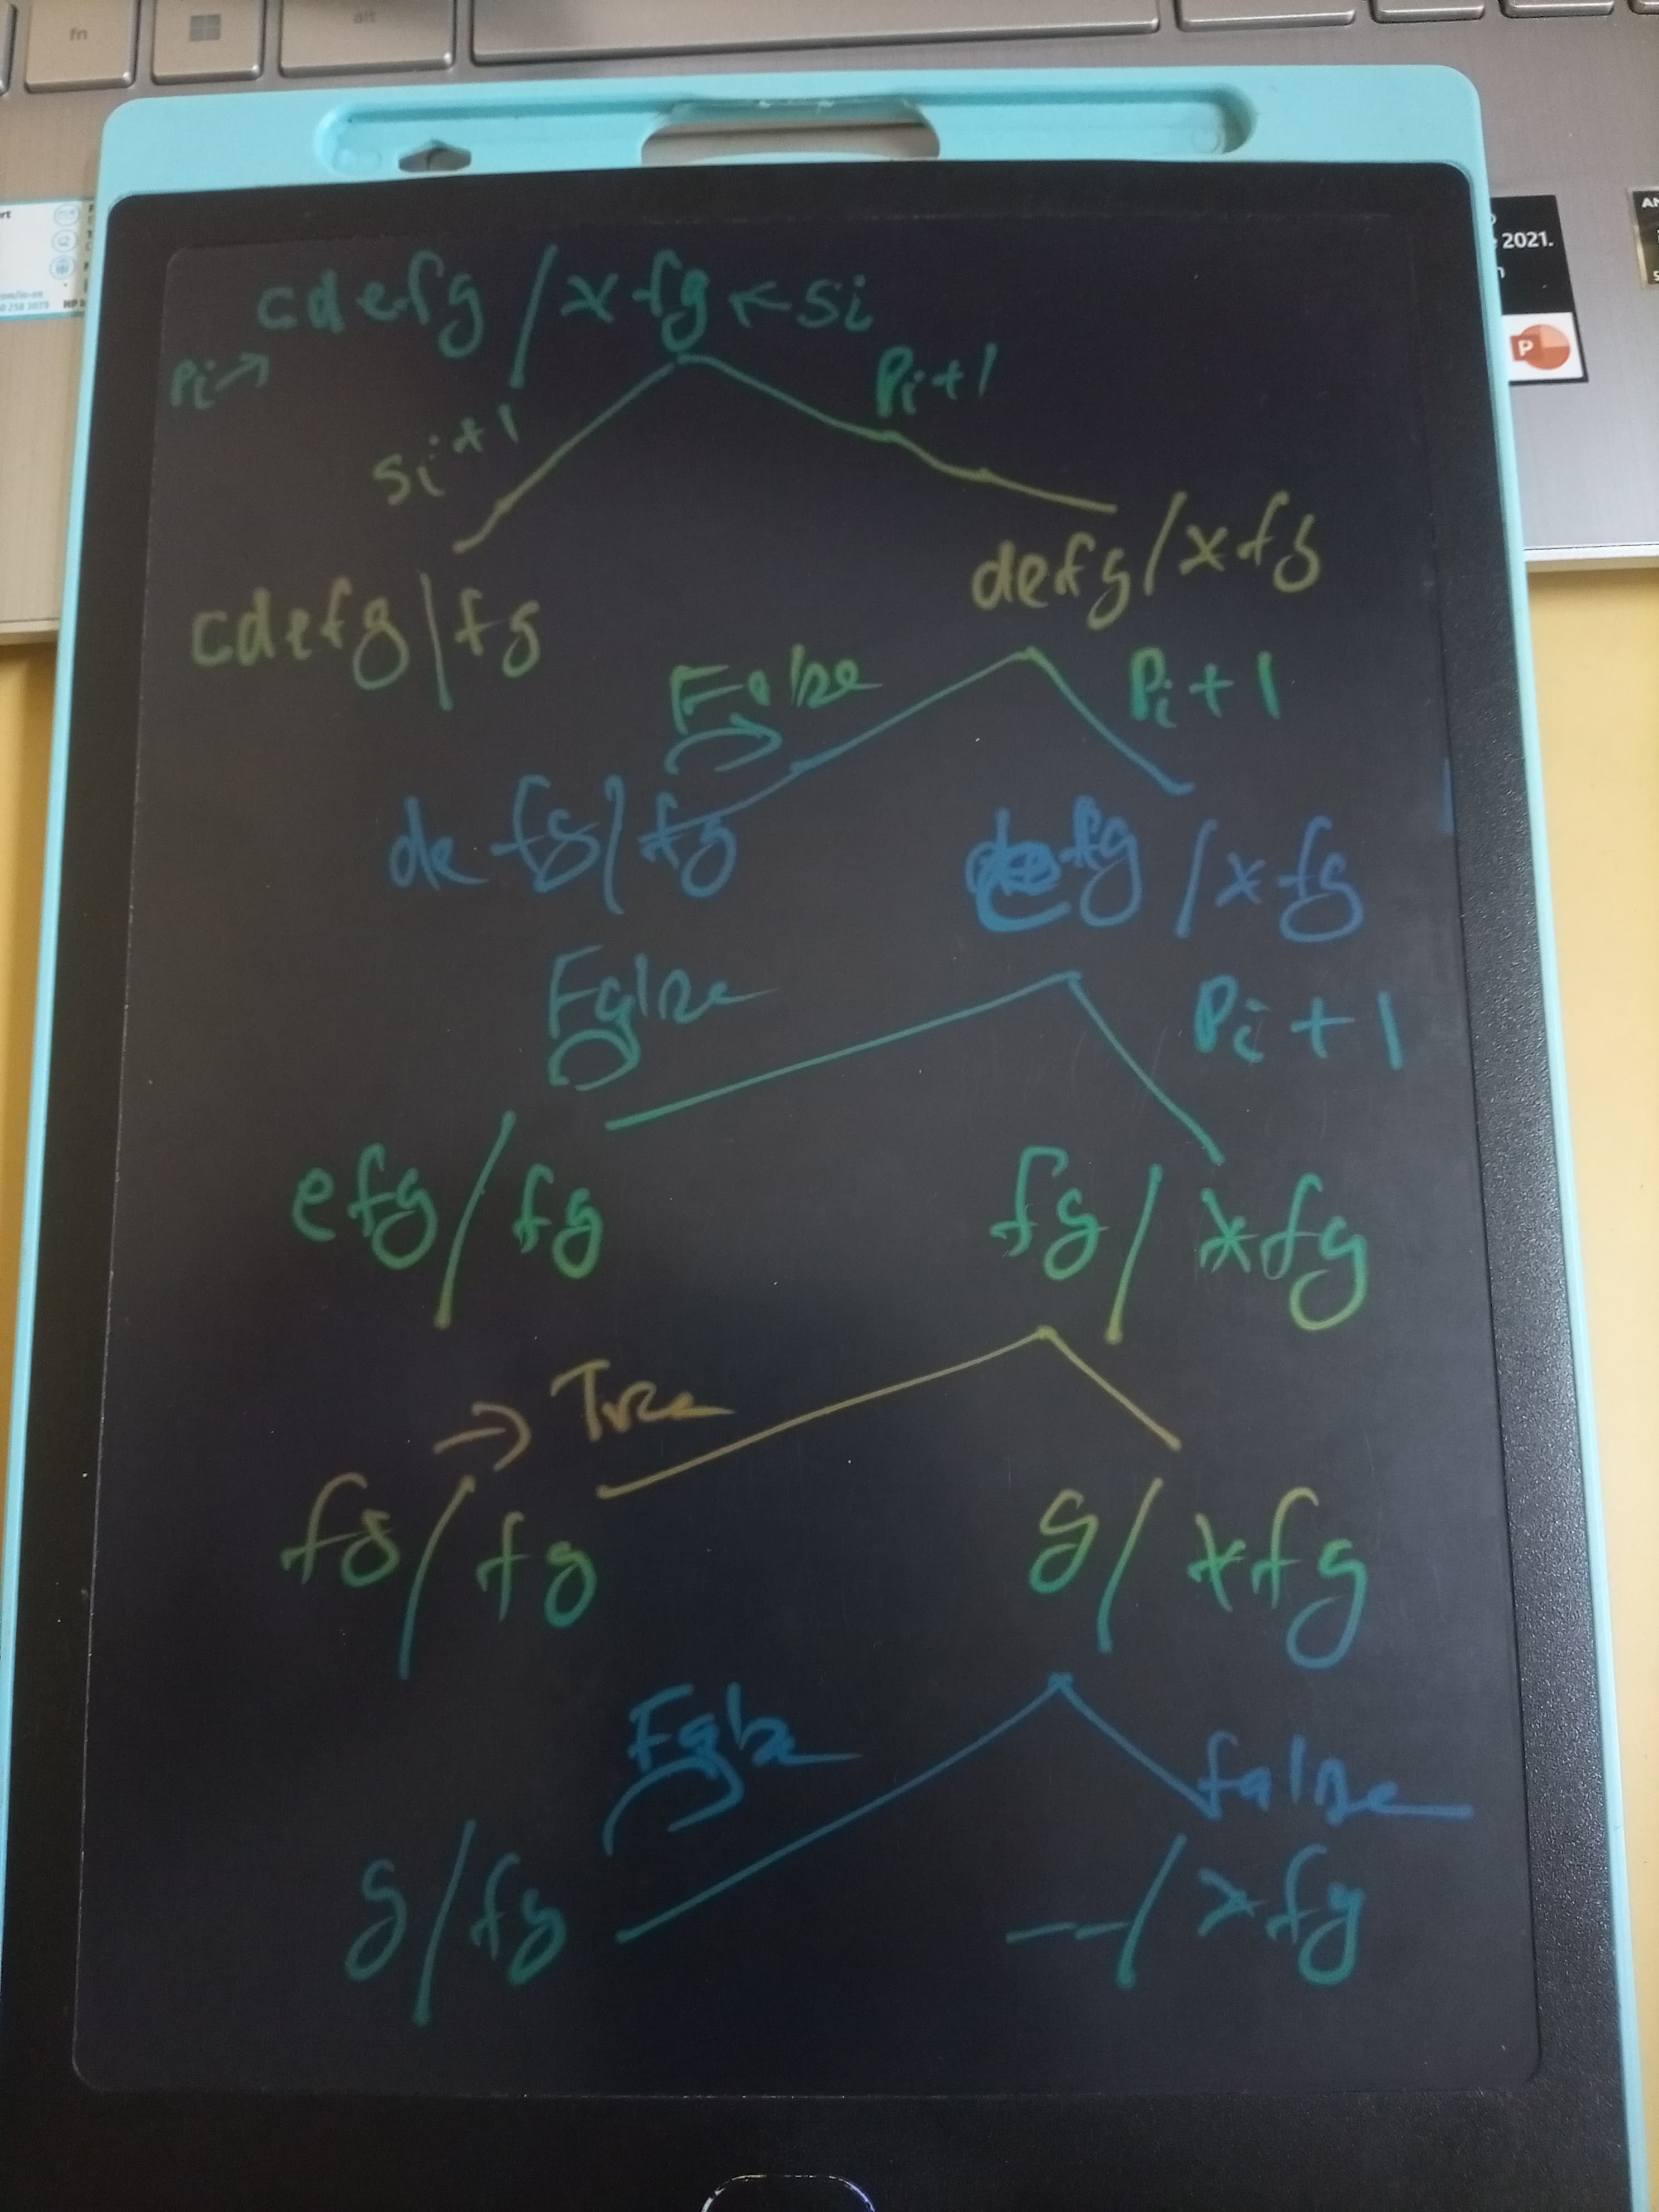 fn
alt
cdefg / xfg ← si
Pi →
Pi+1
si+1
defg / xfg
cdefg | fg
False
Pi+1
defg | fg
efg / xfg
False
Pi+1
efg / fg
fg / xfg
→ True
fg / fg
g / xfg
False
false
g / fg
-- / xfg
2021.
P